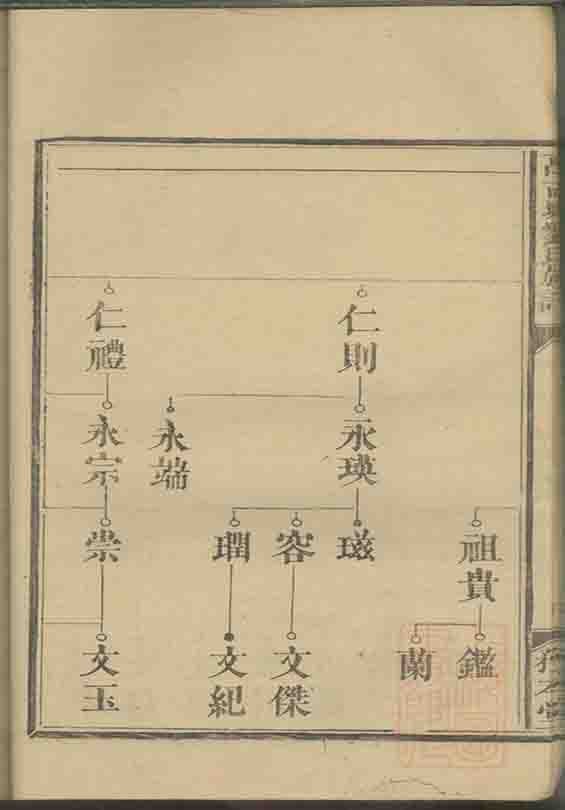 祖貴
鑑
蘭
仁則
永瑛
璲
容
文傑
瑻
文紀
永端
仁禮
永宗
崇
文玉